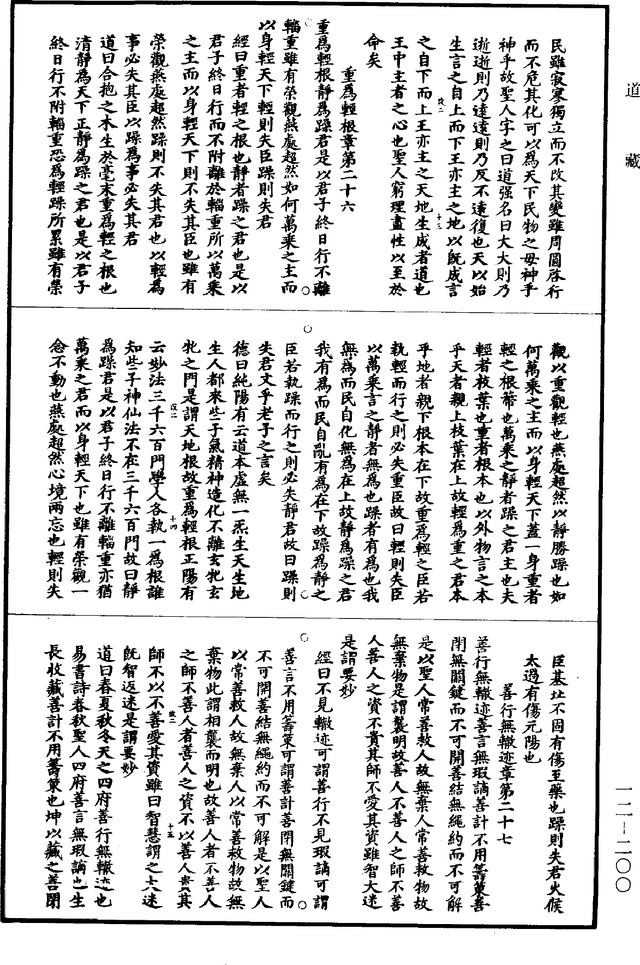 道藏
民雖寂寥獨立而不改其變雖周圓啓行
而不危其化可以為天下民物之母神乎
神乎故聖人字之曰道强名曰大大則乃
逝逝則乃遠遠則乃反不遠復也天以始
生言之自上而下王亦主之地以既成言
之自下而上王亦主之天地生成者道也
王中主者之心也聖人窮理盡性以至於
命矣
重為輕根章第二十六
重為輕根靜為躁君是以君子終日行不離
輜重雖有榮觀燕處超然如何萬乘之主而
以身輕天下輕則失臣躁則失君
經曰重者輕之根也靜者躁之君也是以
君子終日行而不附離於輜重所以萬乘
之主而以身輕天下則不失其臣也雖有
榮觀燕處超然躁則不失其君也以輕為
事必失其臣以躁為事必失其君
道曰合抱之木生於毫末重為輕之根也
清靜為天下正靜為躁之君也是以君子
終日行不附輜重恐為輕躁所累雖有榮
觀以重觀輕也燕處超然以靜勝躁也如
何萬乘之主而以身輕天下蓋一身重者
輕之根蔕也萬乘之靜者躁之君主也夫
輕者枝葉也重者根本也以外物言之本
乎天者親上枝葉在上故輕為重之君本
乎地者親下根本在下故重為輕之臣若
執輕而行之則必失重臣故曰輕則失臣
以萬乘言之靜者無為也躁者有為也我
無為而民自化無為在上故靜為躁之君
我有為而民自亂有為在下故躁為靜之
臣若執躁而行之則必失靜君故曰躁則
失君文乎老子之言矣
德曰純陽有云道本虛無一炁生天生地
生人都來些子氣精神造化不離玄牝玄
牝之門是謂天地根故重為輕根正陽有
云妙法三千六百門學人各執一為根誰
知些子神仙法不在三千六百門故曰靜
為躁君是以君子終日行不離輜重亦猶
萬乘之君而以身輕天下也雖有榮觀一
念不動也燕處超然心境兩忘也輕則失
臣基址不固有傷至藥也躁則失君火候
太過有傷元陽也
善行無轍迹章第二十七
善行無轍迹善言無瑕讁善計不用籌筞善
閉無關鍵而不可開善結無繩約而不可解
是以聖人常善救人故無棄人常善救物故
無棄物是謂襲明故善人不善人之師不善
人善人之資不貴其師不愛其資雖智大迷
是謂要妙
經曰不見轍迹可謂善行不見瑕讁可謂
善言不用籌筞可謂善計善閉無關鍵而
不可開善結無繩約而不可解是以聖人
以常善救人故無棄人以常善救物故無
棄物此謂相襲而明也故善人者不善人
之師不善人者善人之資不以善人貴其
師不以不善愛其資雖曰智慧謂之大迷
既智返迷是謂要妙
道曰春夏秋冬天之四府善行無轍迹也
易書詩春秋聖人四府善言無瑕讁也生
長收藏善計不用籌筞也坤以藏之善閉
改二 十三
改二 十四
改二 十五
一二—二〇〇